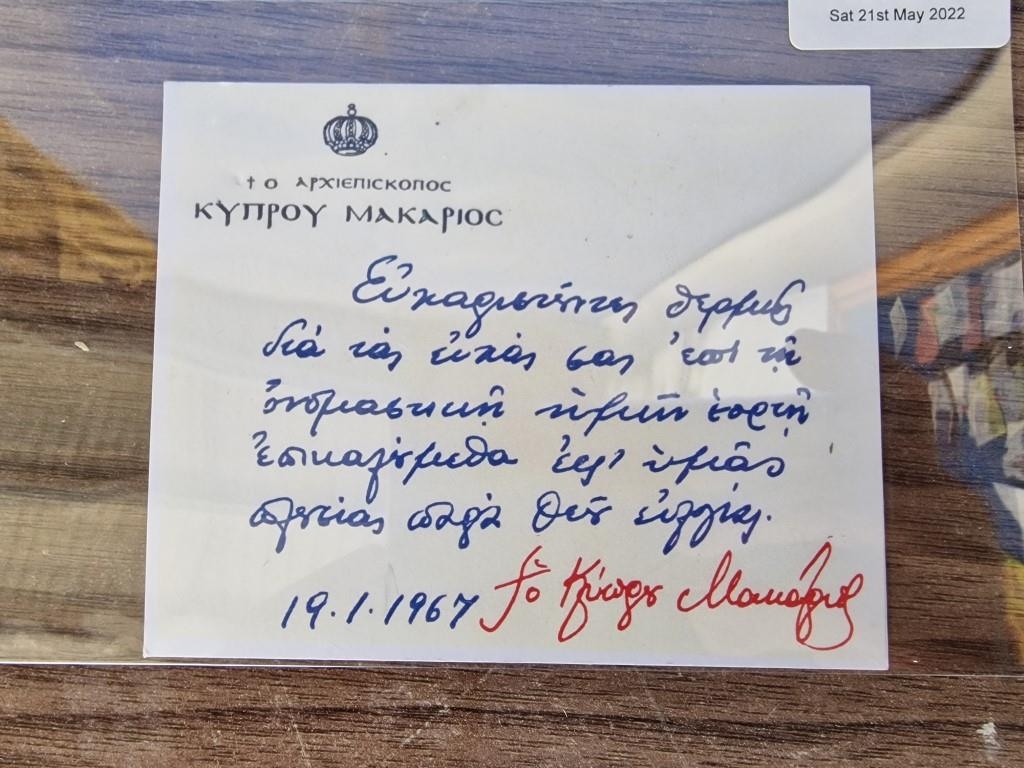 Sat 21st May 2022
† Ο ΑΡΧΙΕΠΙCΚΟΠΟC
ΚΥΠΡΟΥ ΜΑΚΑΡΙΟC
Εὐχαριστοῦντες θερμῶς
διά τάς εὐχάς σας ἐπί τῇ
ὀνομαστικῇ ἡμῶν ἑορτῇ
ἐπικαλούμεθα ἐφ' ὑμᾶς
πλουσίας παρά Θεοῦ εὐλογίας.
19.1.1967 † ὁ Κύπρου Μακάριος